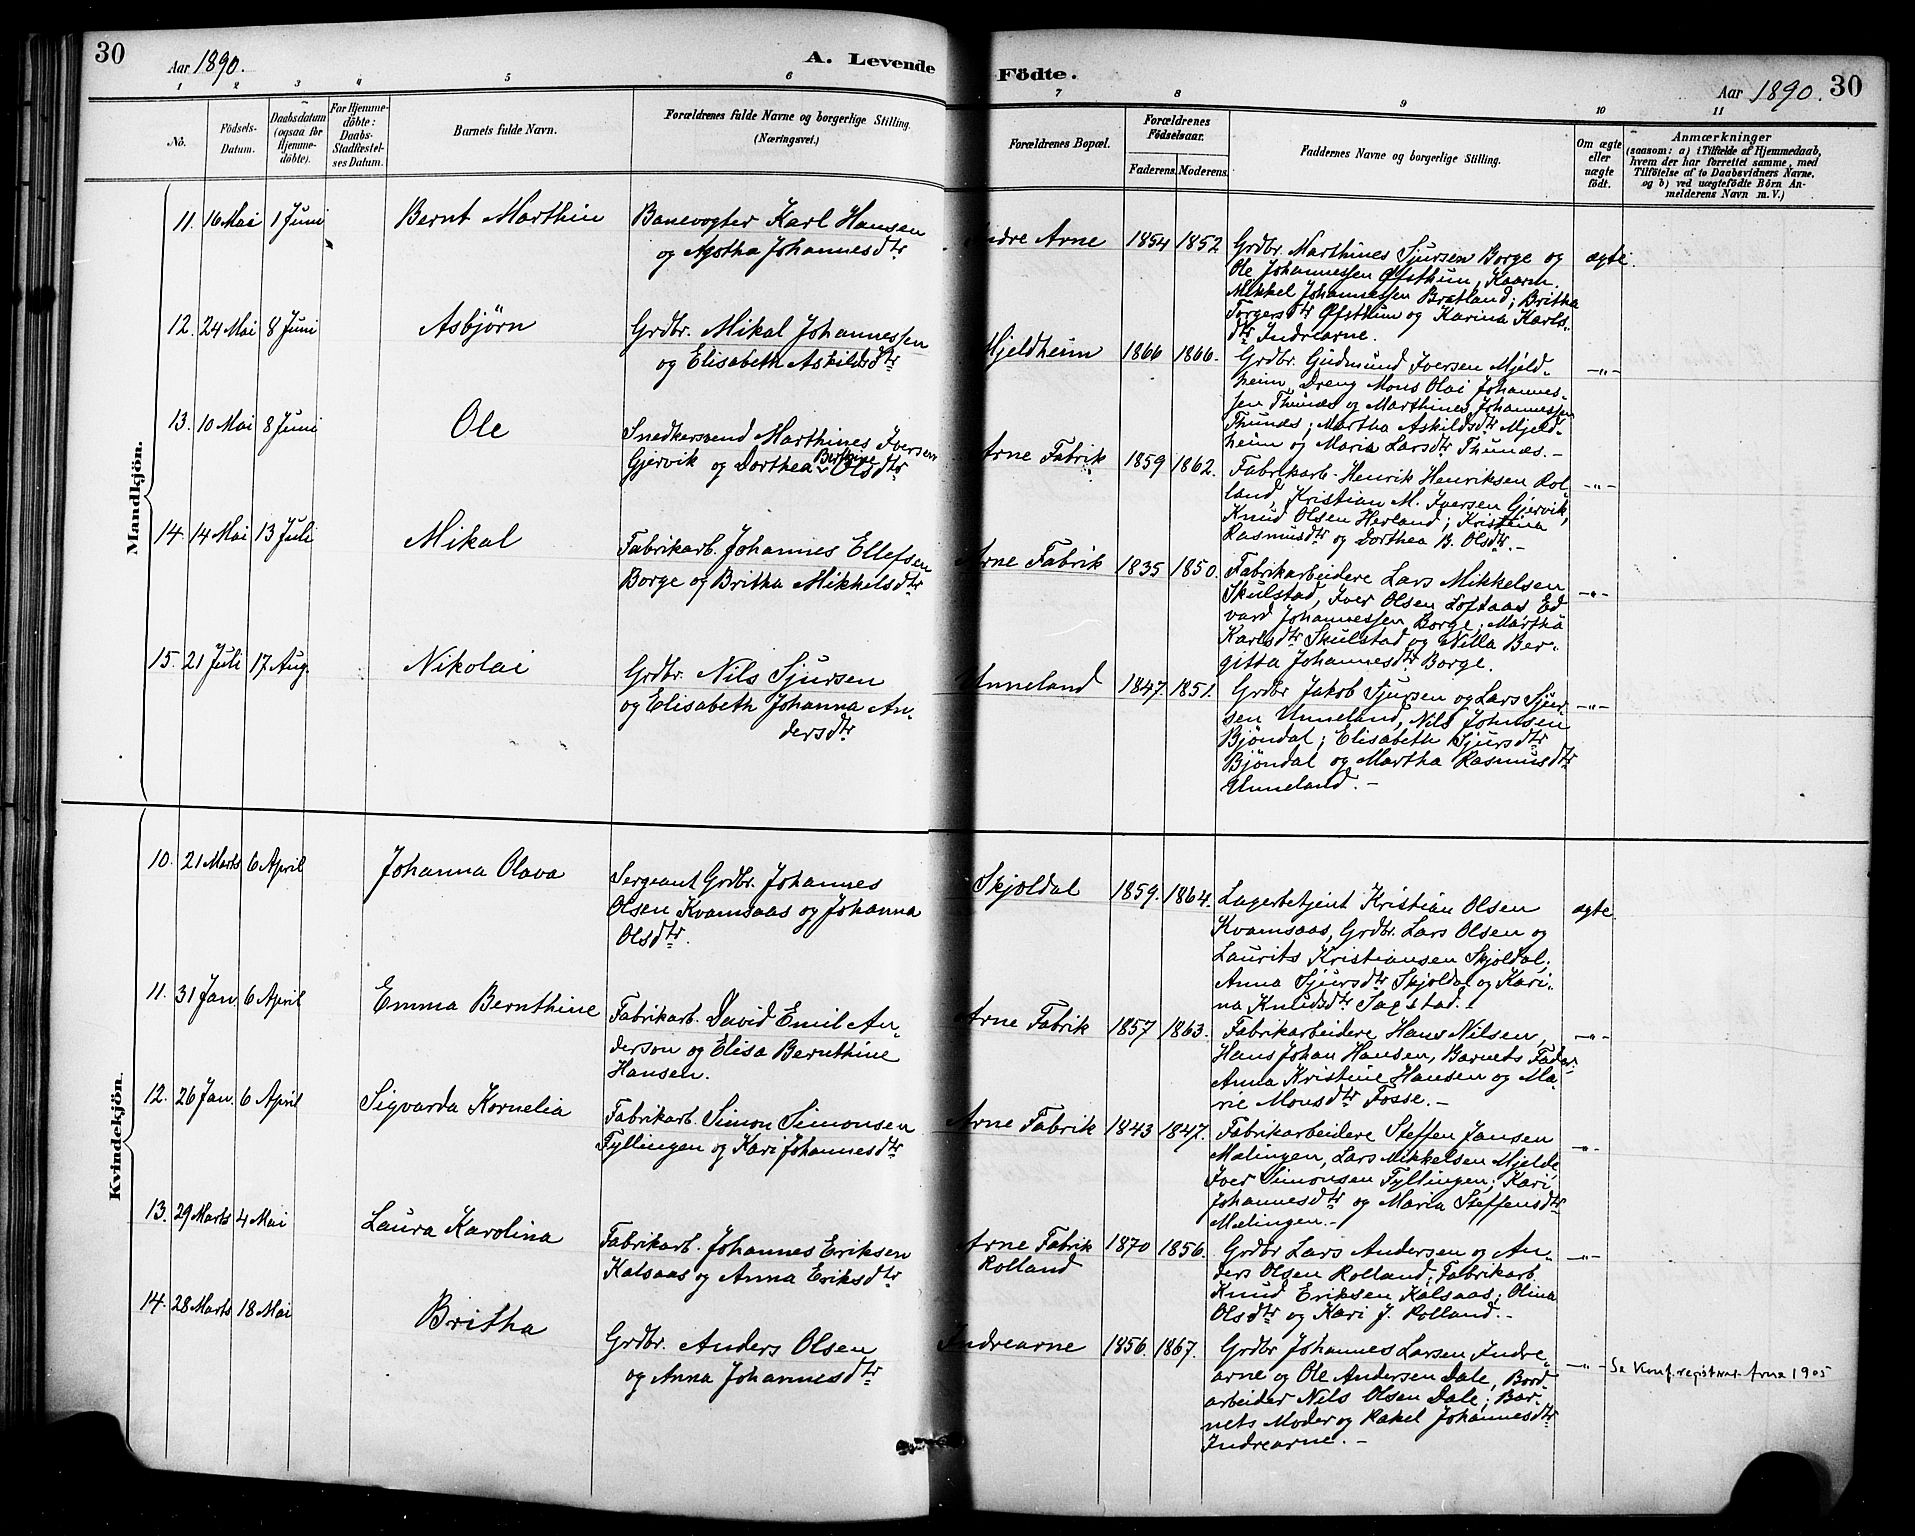 30
Aar 1890.
A. Levende Födte.
Aar 1890. 30
1 2 3 4 5 6 7 8 9 10 11
No.
Födsels-
Datum.
Daabsdatum
(ogsaa for
Hjemme-
döbte).
For Hjemme-
döbte:
Daabs-
Stadfæstel-
ses Datum.
Barnets fulde Navn.
Forældrenes fulde Navne og borgerlige Stilling.
(Næringsvei.)
Forældrenes Bopæl.
Forældrenes
Födselsaar.
Faderens. Moderens.
Faddernes Navne og borgerlige Stilling.
Om ægte
eller
uægte
födt.
Anmærkninger
(saasom: a) i Tilfælde af Hjemmedaab,
hvem der har forrettet samme, med
Tilföielse af to Daabsvidners Navne,
og b) ved uægtefödte Börn An-
melderens Navn m. V.)
Mandkjön.
11. 16 Mai 1 Juni Bernt Marthin
Banevogter Karl Hansen
og Agatha Johannesdtr
Indre Arne 1854 1852
Grdbr. Marthines Sjursen Borge og
Ole Johannessen Øfsthun, Kaarm.
Mikkel Johannessen Bratland; Britha
Torgersdtr Øfsthun og Karina Karls-
dtr Indrearne.
ægte.
12. 24 Mai 8 Juni Asbjörn
Grdbr. Mikal Johannessen
og Elisabeth Askildsdtr
Mjeldheim 1866 1866.
Grdbr. Gudmund Iversen Mjeld-
heim, Dreng Mons Olai Johannes-
sen Thunæs og Marthines Johannessen
Thunæs; Martha Askildsdtr Mjeld-
heim og Maria Larsdtr Thunæs.-
-"-
13. 10 Mai 8 Juni Ole
Snedkersvend Marthines Iversen
Gjervik og Dorthea Berthine Olsdtr
Arne Fabrik 1859 1862.
Fabrikarb. Henrik Henriksen Rol-
land, Kristian M. Iversen Gjervik,
Knud Olsen Herland; Kristina
Rasmusdtr og Dorthea B. Olsdtr.-
-"-
14. 14 Mai 13 Juli Mikal
Fabrikarb. Johannes Ellefsen
Borge og Britha Mikkelsdtr
Arne Fabrik 1835 1850.
Fabrikarbeidere Lars Mikkelsen
Skulstad, Iver Olsen Loftaas, Ed
vard Johannessen Borge; Martha
Karlsdtr Skulstad og Nilla Ber-
gitta Johannesdtr Borge.
-"-
15. 21 Juli 17 Aug. Nikolai
Grdbr. Nils Sjursen
og Elisabeth Johanna An-
dersdtr
Unneland 1847. 1851.
Grdbr Jakob Sjursen og Lars Sjur-
sen Unneland, Nils Johnsen
Bjöndal; Elisabeth Sjursdtr
Bjöndal og Martha Rasmusdtr
Unneland.-
-"-
Kvindekjön.
10. 21 Marts 6 April Johanna Olava
Sergeant Grdbr. Johannes
Olsen Kvamsaas og Johanna
Olsdtr.
Skjoldal 1859. 1864.
Lagerbetjent Kristian Olsen
Kvamsaas, Grdbr. Lars Olsen og
Laurits Kristiansen Skjoldal;
Anna Sjursdtr Skjoldal og Kari-
na Knudsdtr Sagstad.-
ægte.
11. 31 Jan. 6 April Emma Bernthine
Fabrikarb. David Emil An-
derson og Elisa Bernthine
Hansen.
Arne Fabrik 1857 1863.
Fabrikarbeidere Hans Nilsen,
Hans Johan Hansen, Barnets Fader;
Anna Kristine Hansen og Ma-
rie Monsdtr Fosse.-
-"-
12. 26 Jan. 6 April Sigvarda Kornelia
Fabrikarb. Simon Simonsen
Tyllingen og Kari Johannesdtr
Arne Fabrik 1843 1847.
Fabrikarbeidere Steffen Jansen
Mælingen, Lars Mikkelsen Mjelde,
Iver Simonsen Tyllingen; Kari
Johannesdtr og Maria Steffensdtr
Mælingen.-
-"-
13. 29 Marts 4 Mai Laura Karolina
Fabrikarb. Johannes Eriksen
Kalsaas og Anna Eriksdtr
Arne Fabrik
Rolland
1870 1856.
Grdbr Lars Andersen og An-
ders Olsen Rolland, Fabrikarb.
Knud Eriksen Kalsaas; Olina
Olsdtr og Kari J. Rolland.-
-"-
14. 28 Marts 18 Mai Britha
Grdbr. Anders Olsen
og Anna Johannesdtr
Indrearne 1856. 1867.
Grdbr Johannes Larsen Indre-
arne og Ole Andersen Dale, Bord
arbeider Nils Olsen Dale; Bar-
nets Moder og Rakel Johannesdtr
Indrearne.-
-"-
Se Konf.registret Arna 1905